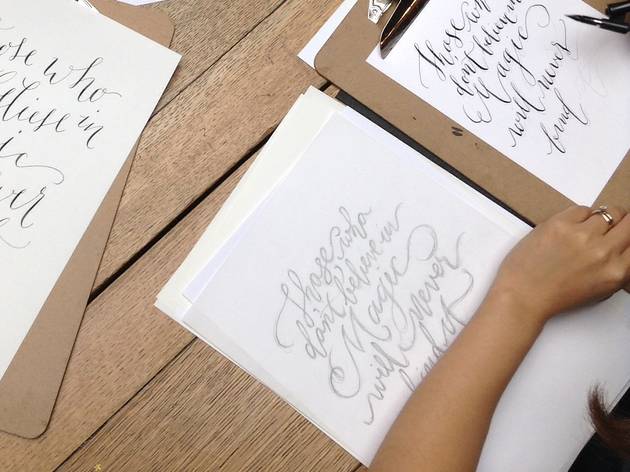 ose who
elieve in
ic
ver
Those who
don't believe in
Magic
will never
find it
Those who
don't believe in
Magic
will never
find